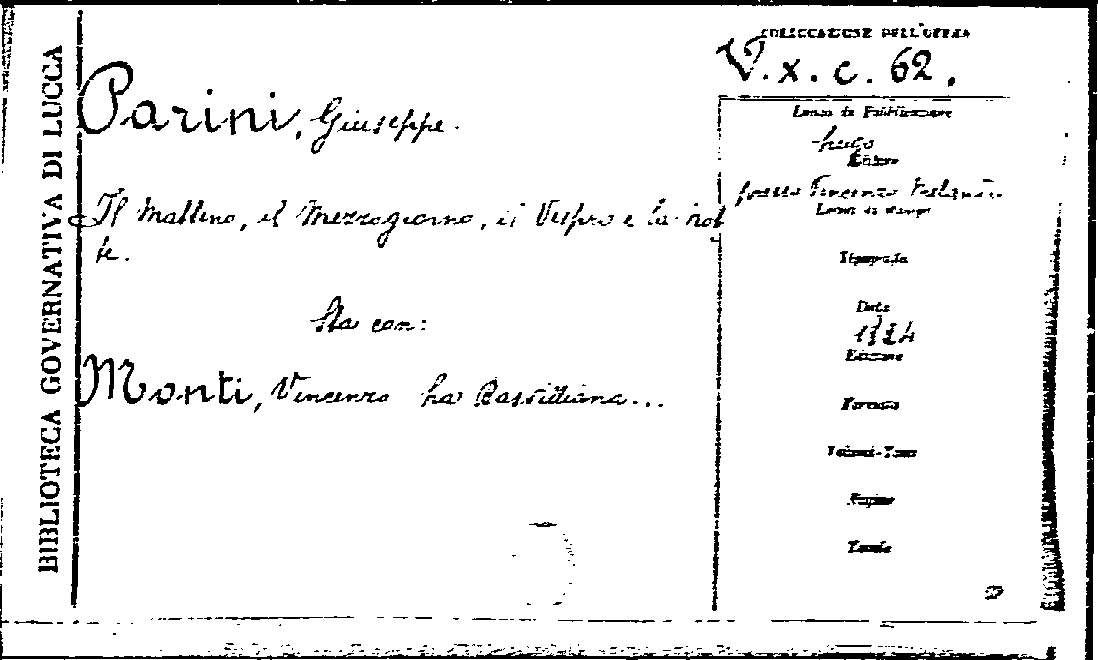 BIBLIOTECA GOVERNATIVA DI LUCCA
COLLOCAZIONE DELL'OPERA
V.x.c.62.
Parini, Giuseppe.
Luogo di Pubblicazione
Lugo
Editore
presso Vincenzo Melandri
Luogo di stampa
Il Mattino, il Mezzogiorno, il Vespro e la not
te.
Tipografia
Data
1824
Sta con:
Edizione
Monti, Vincenzo La Bassvilliana...
Formato
Volumi-Tomi
Pagine
Tavole